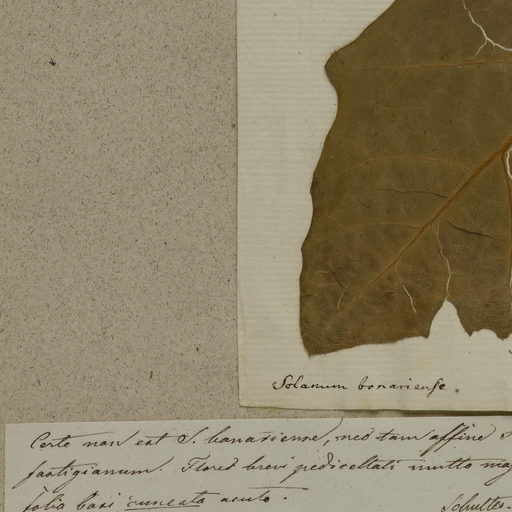 Solanum bonariense.
Certe non est S. bonariense, nec tam affine S
fastigianum. Flores brevi pedicellati multo maj
folia basi cuneata acuto.
Schultes.